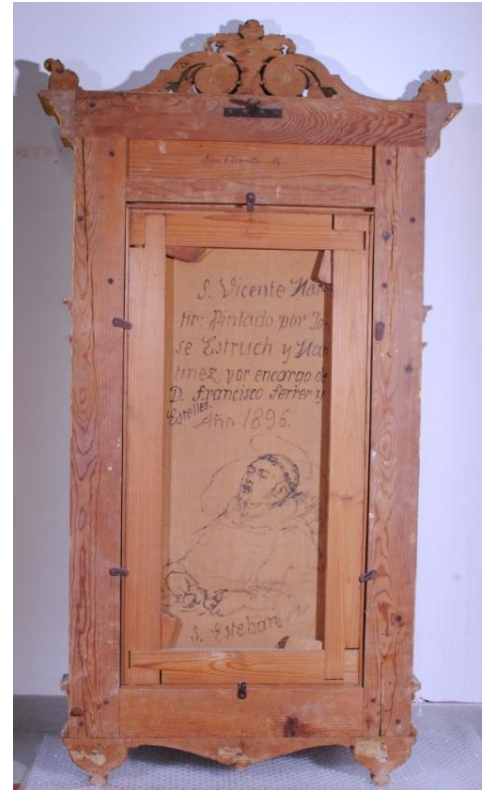 San Vicente M.
S. Vicente Mar
tir: Pintado por Jo-
se Estruch y Mar
tinez por encargo de
D. francisco ferrer y
Estelles.
Año 1896.
S. Esteban